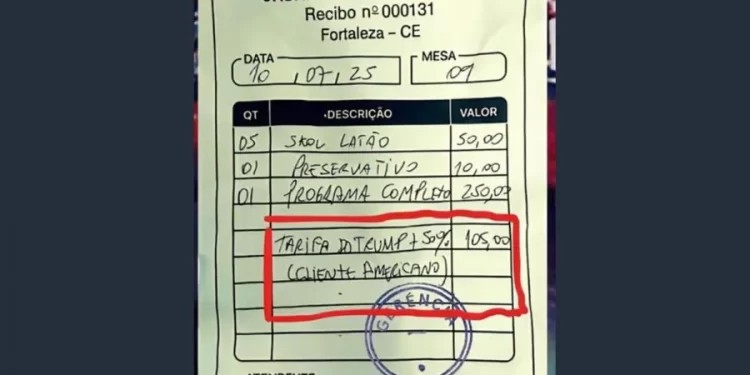 Recibo nº 000131
Fortaleza – CE
DATA
10 , 07 , 25
MESA
09
QT DESCRIÇÃO VALOR
05 SKOL LATÃO 50,00
01 PRESERVATIVO 10,00
01 PROGRAMA COMPLETO 250,00
TARIFA DO TRUMP + 50% 105,00
(CLIENTE AMERICANO)
GERÊNCIA